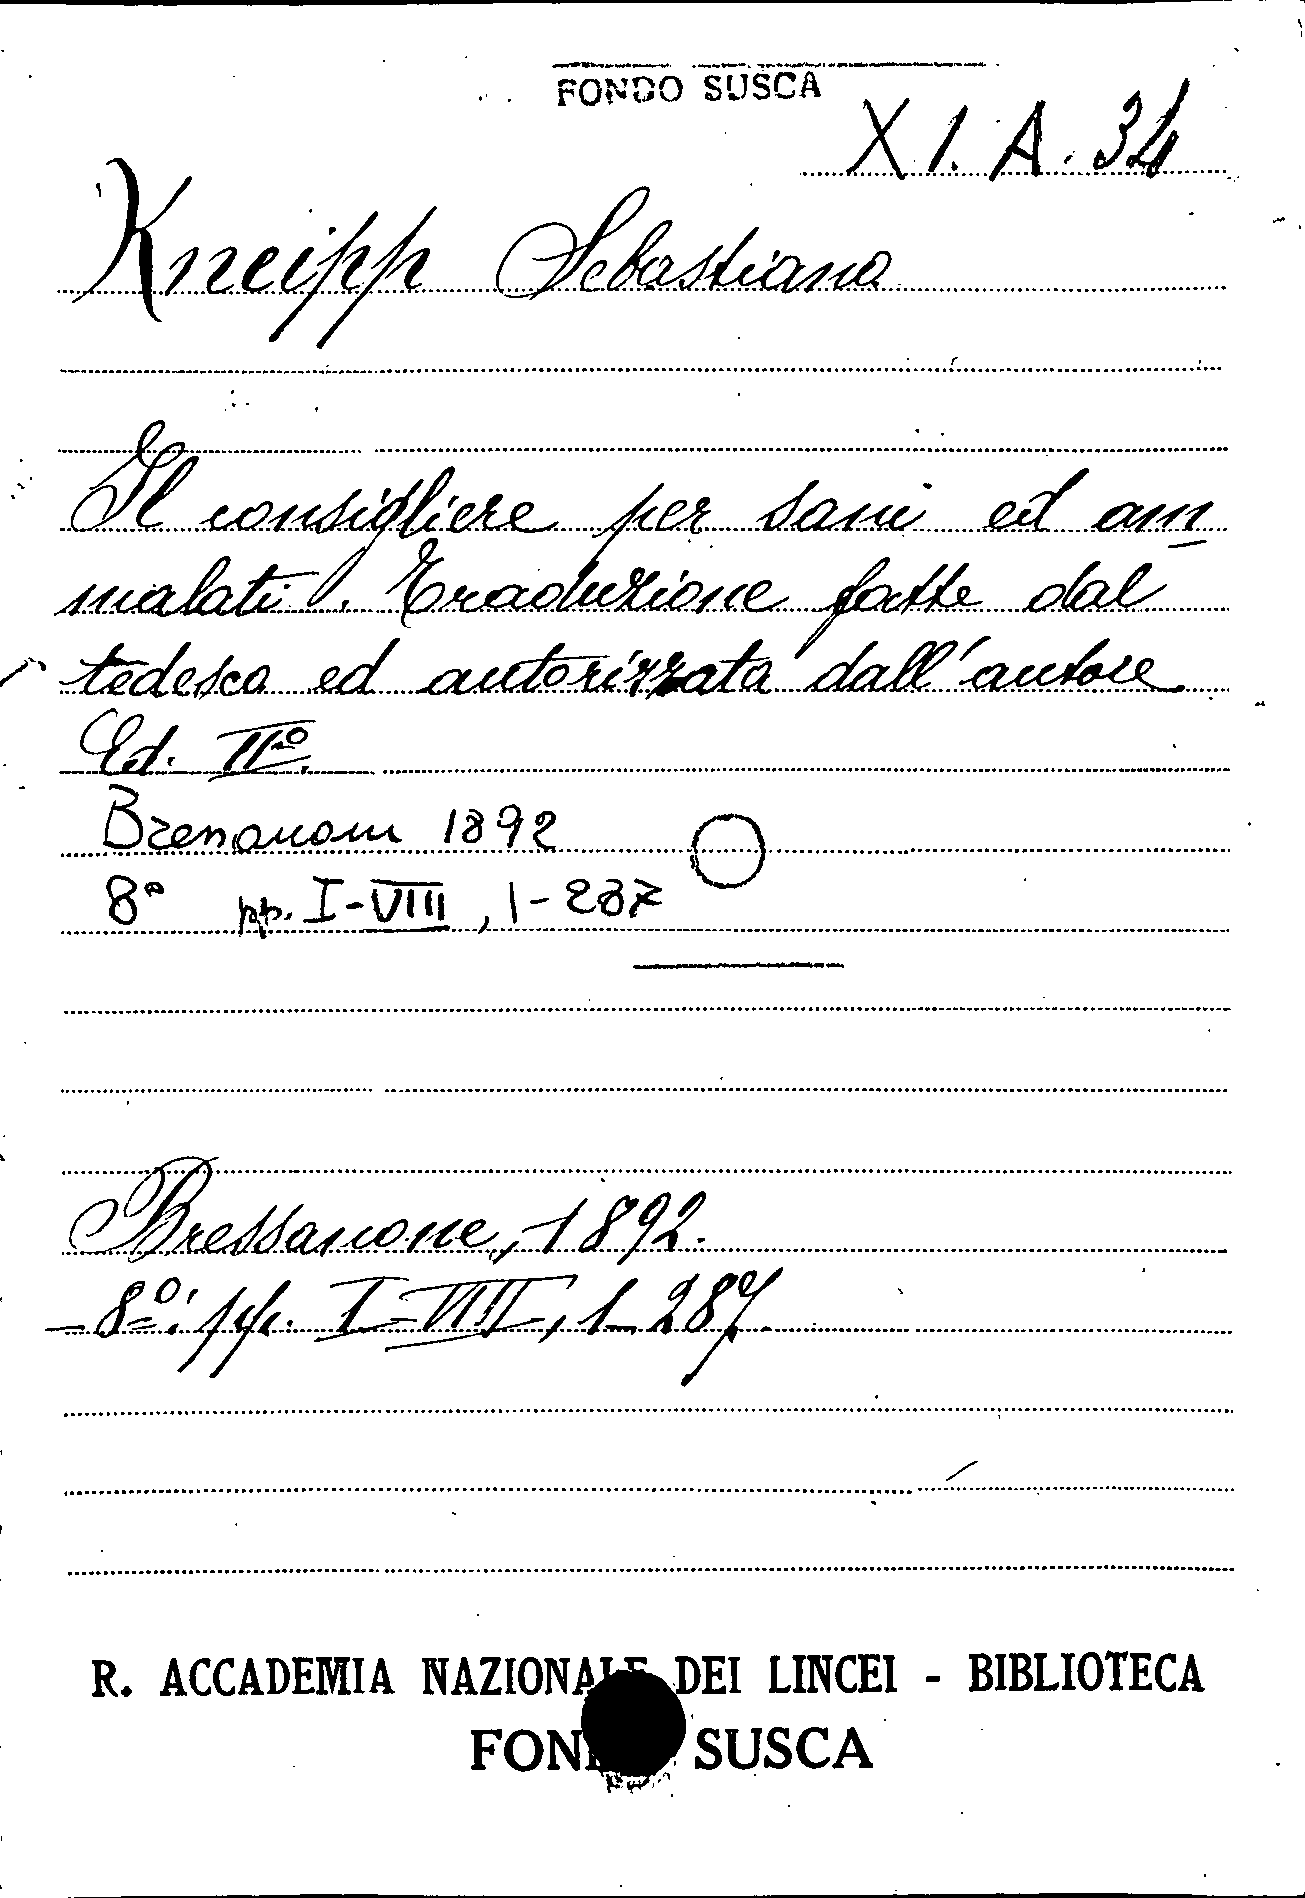 FONDO SUSCA
XI. A. 34
Kneipp Sebastiano
Il consigliere per sani ed am
malati. Traduzione fatte dal
tedesco ed autorizzata dall'autore
Ed. IIª.
1892
8º pp. I-VIII, 1-287
Bressanone, 1892.
8º: pp. I-VIII, 1-287.
R. ACCADEMIA NAZIONALE DEI LINCEI - BIBLIOTECA
FONDO SUSCA